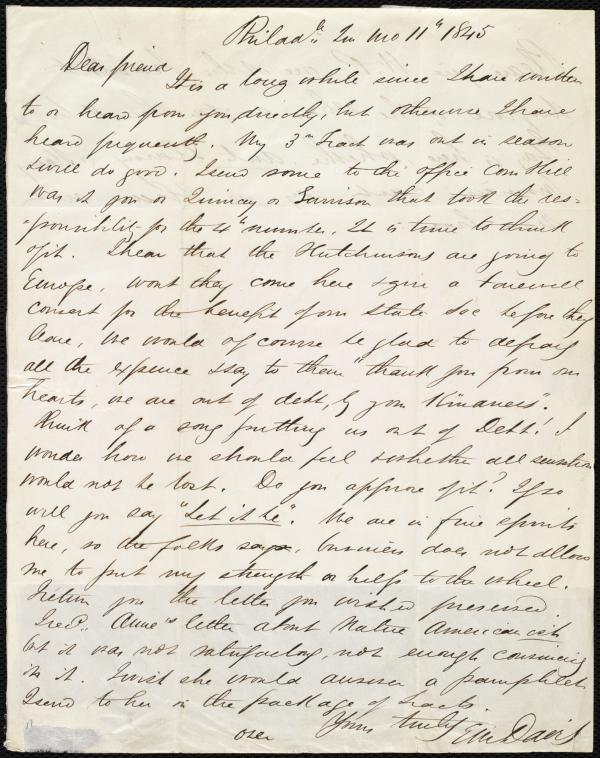 Philad^a 7m mo 11" 1845
Dear friend
It is a long while since I have written
to or heard from you directly, but otherwise I have
heard frequently. My 3^rd Tract was out in season
& will do good. I send some to the office Cornhill
was it you or Quincy or Garrison that took the res=
=ponsibility for the 4" number, It is time to think
of it. I hear that the Hutchinsons are going to
Europe, wont they come here & give a farewell
concert for the benefit of our State Soc before they
leave, we would of course be glad to defray
all the expence & say to them "thank you from our
hearts, we are out of debt, by your Kindness".
Think of a song putting us out of Debt! I
wonder how we should feel & whether all sensation
would not be lost. Do you approve of it? If so
will you say "Let it be". We are in fine spirits
here, so the folks say, business does not allow
me to put my strength or help to the wheel.
I return you the letter you wished preserved
I rec^d. Anne's letter about Native Americanish
but it was not satisfactory, not enough convincing
in it. I wish she would answer a pamphlet
I send to her in the package of tracts.
Yours truly E M Davis
over